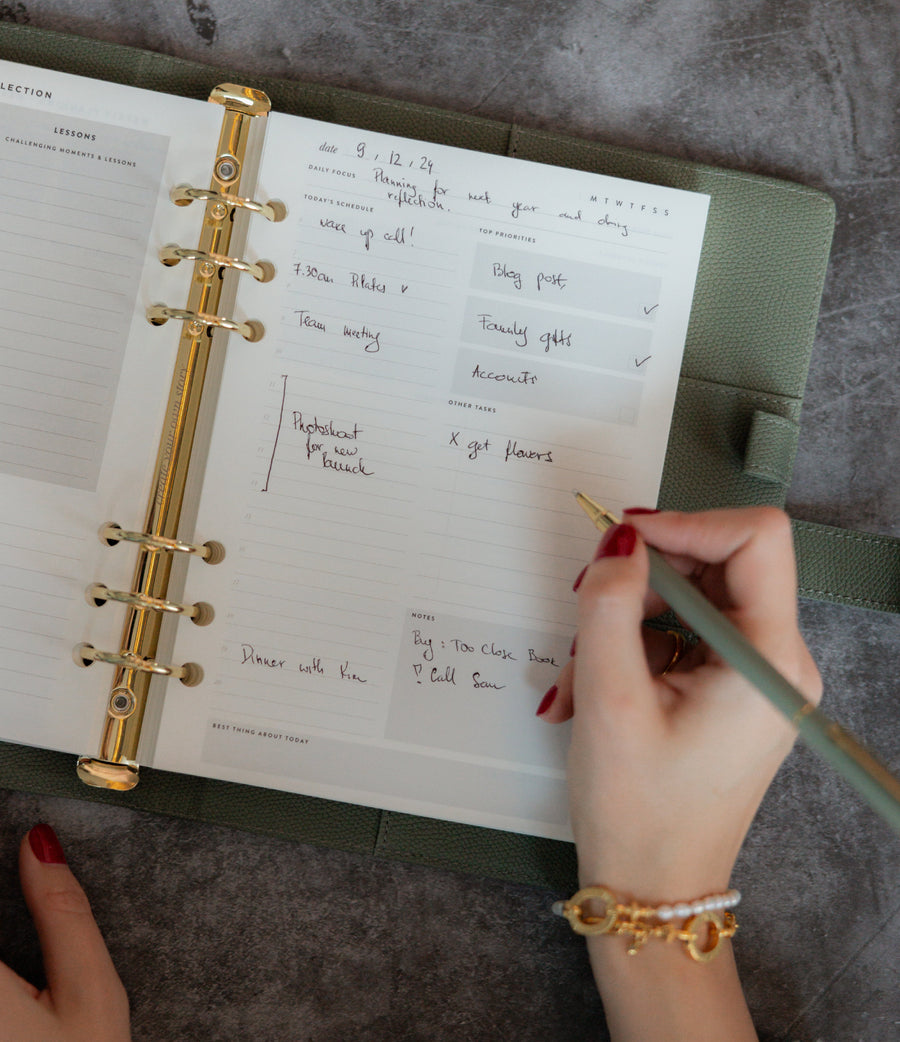 LECTION
LESSONS
CHALLENGING MOMENTS & LESSONS
create your own story
date 9 , 12 , 24
M T W T F S S
DAILY FOCUS Planning for next year and doing
reflection.
TODAY'S SCHEDULE
wake up call!
7.30am Pilates v
Team meeting
Photoshoot
for new
launch
Dinner with Kim
TOP PRIORITIES
Blog post,
Family gifts
Accounts
OTHER TASKS
X get flowers
NOTES
Buy : Too Close Book
! Call Sam
BEST THING ABOUT TODAY